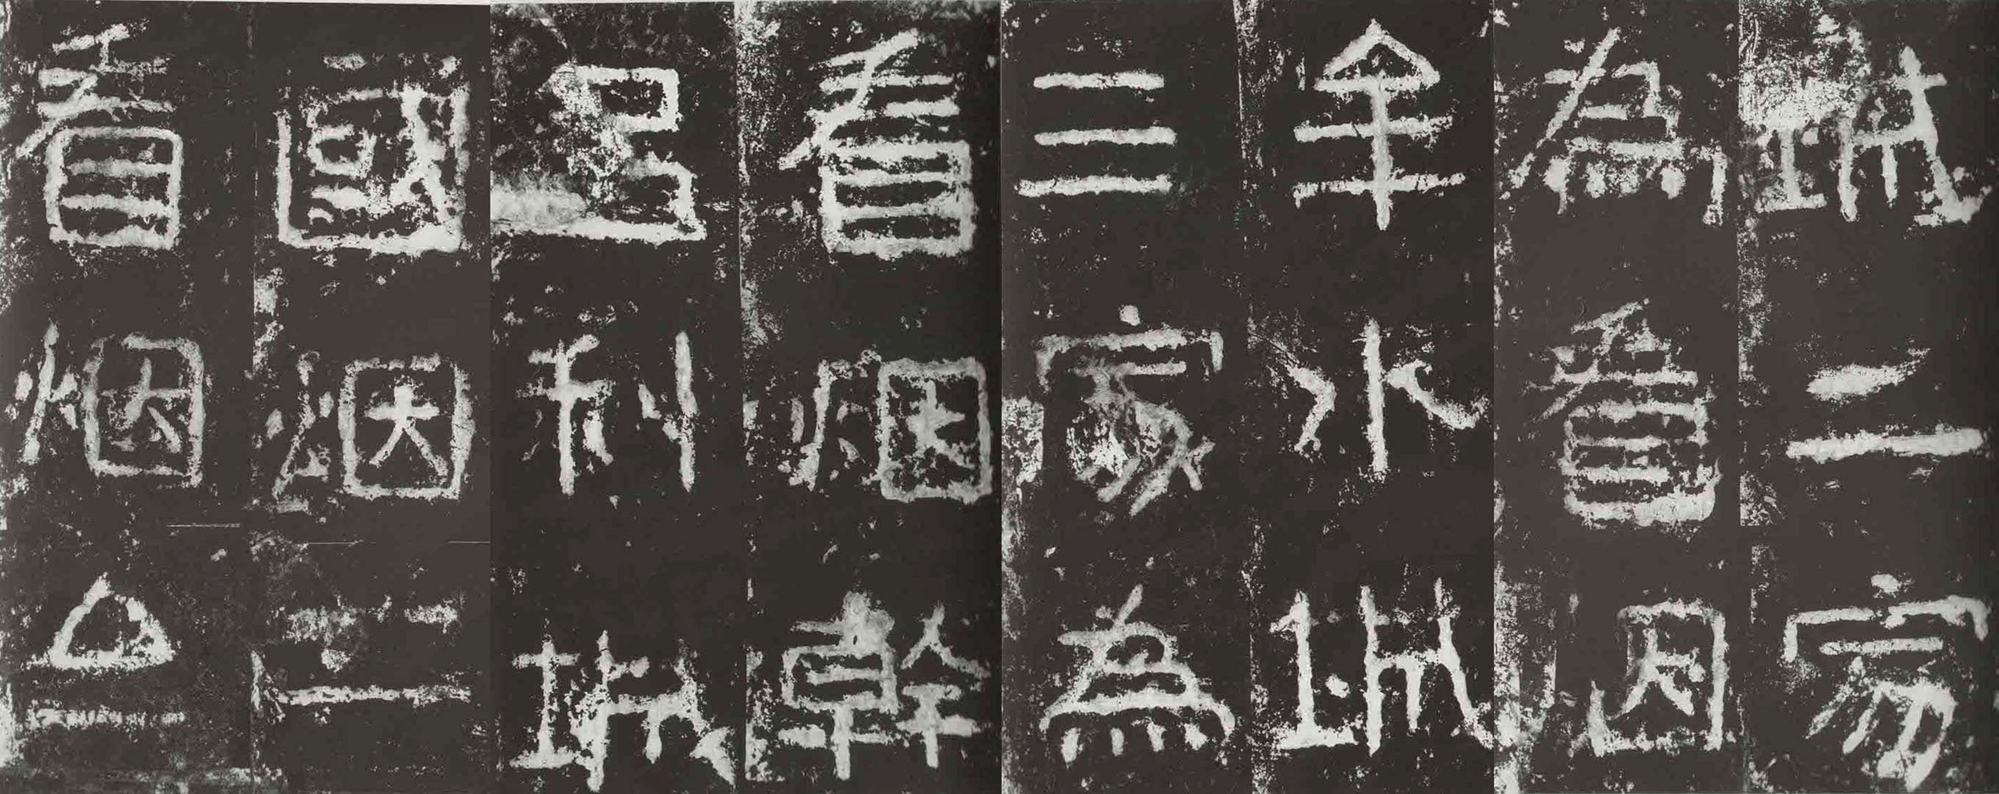 城二家
為看烟
牟水城
三家為
看烟幹
弖利城
國烟二
看烟